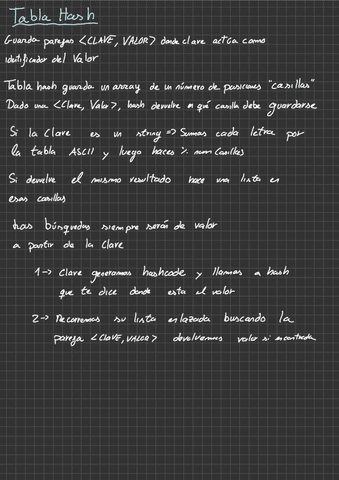 Tabla Hash
Guarda parejas <CLAVE, VALOR> donde clave actúa como
identificador del Valor
Tabla hash guarda un array de un número de posiciones "casillas"
Dado una <Clave, Valor>, hash devuelve en qué casilla debe guardarse
Si la clave es un string => Sumas cada letra por
la tabla ASCII y luego haces % numCasillas
Si devuelve el mismo resultado hace una lista en
esas casillas
Las búsquedas siempre serán de valor
a partir de la clave
1-> Clave generamos hashcode y llamas a hash
que te dice donde esta el valor
2-> Recorremos su lista enlazada buscando la
pareja <CLAVE, VALOR> devolvemos valor si encontrada